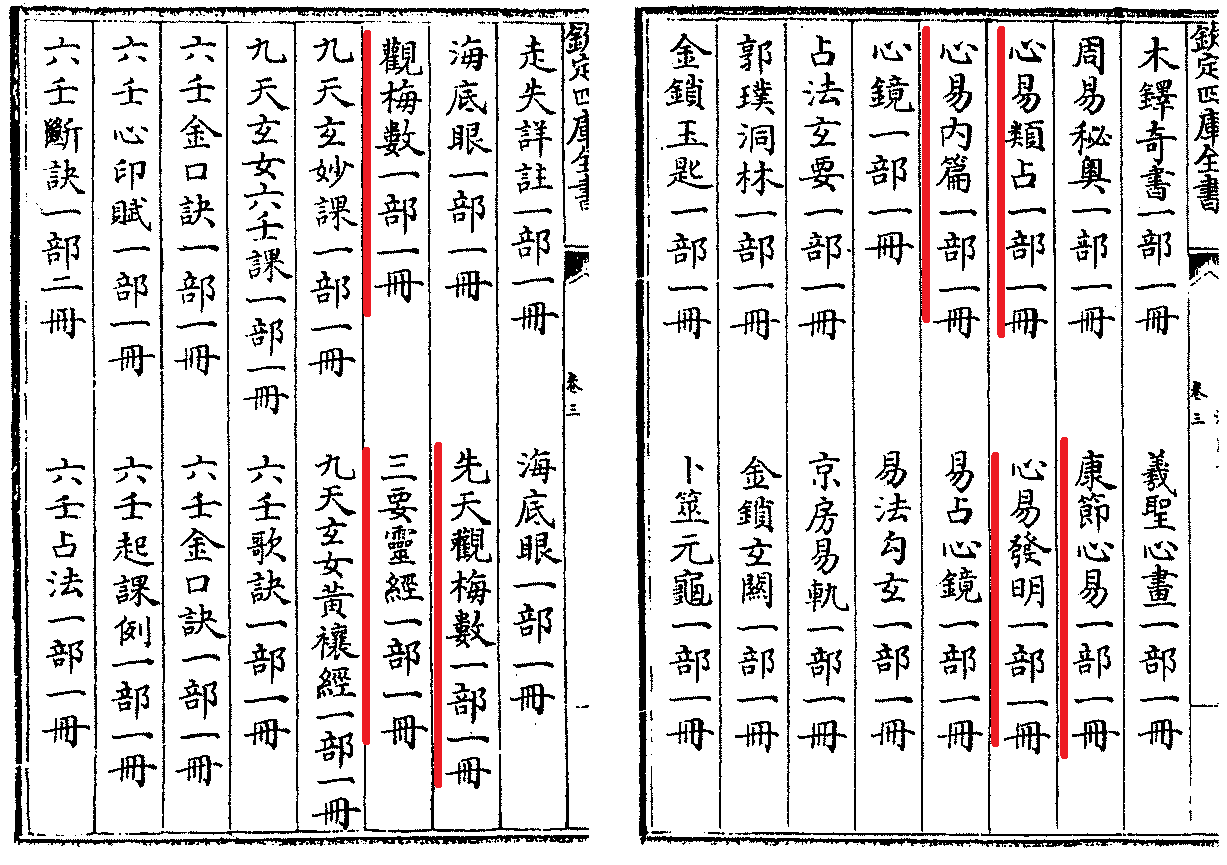 欽定四庫全書
卷三
木鐸奇書一部一冊
羲聖心畫一部一冊
周易秘奧一部一冊
康節心易一部一冊
心易類占一部一冊
心易發明一部一冊
心易內篇一部一冊
易占心鏡一部一冊
心鏡一部一冊
易法勾玄一部一冊
占法玄要一部一冊
京房易軌一部一冊
郭璞洞林一部一冊
金鎖玄關一部一冊
金鎖玉匙一部一冊
卜筮元龜一部一冊
欽定四庫全書
卷三
走失詳註一部一冊
海底眼一部一冊
海底眼一部一冊
先天觀梅數一部一冊
觀梅數一部一冊
三要靈經一部一冊
九天玄妙課一部一冊
九天玄女黃禳經一部一冊
九天玄女六壬課一部一冊
六壬歌訣一部一冊
六壬金口訣一部一冊
六壬金口訣一部一冊
六壬心印賦一部一冊
六壬起課例一部一冊
六壬斷訣一部二冊
六壬占法一部一冊